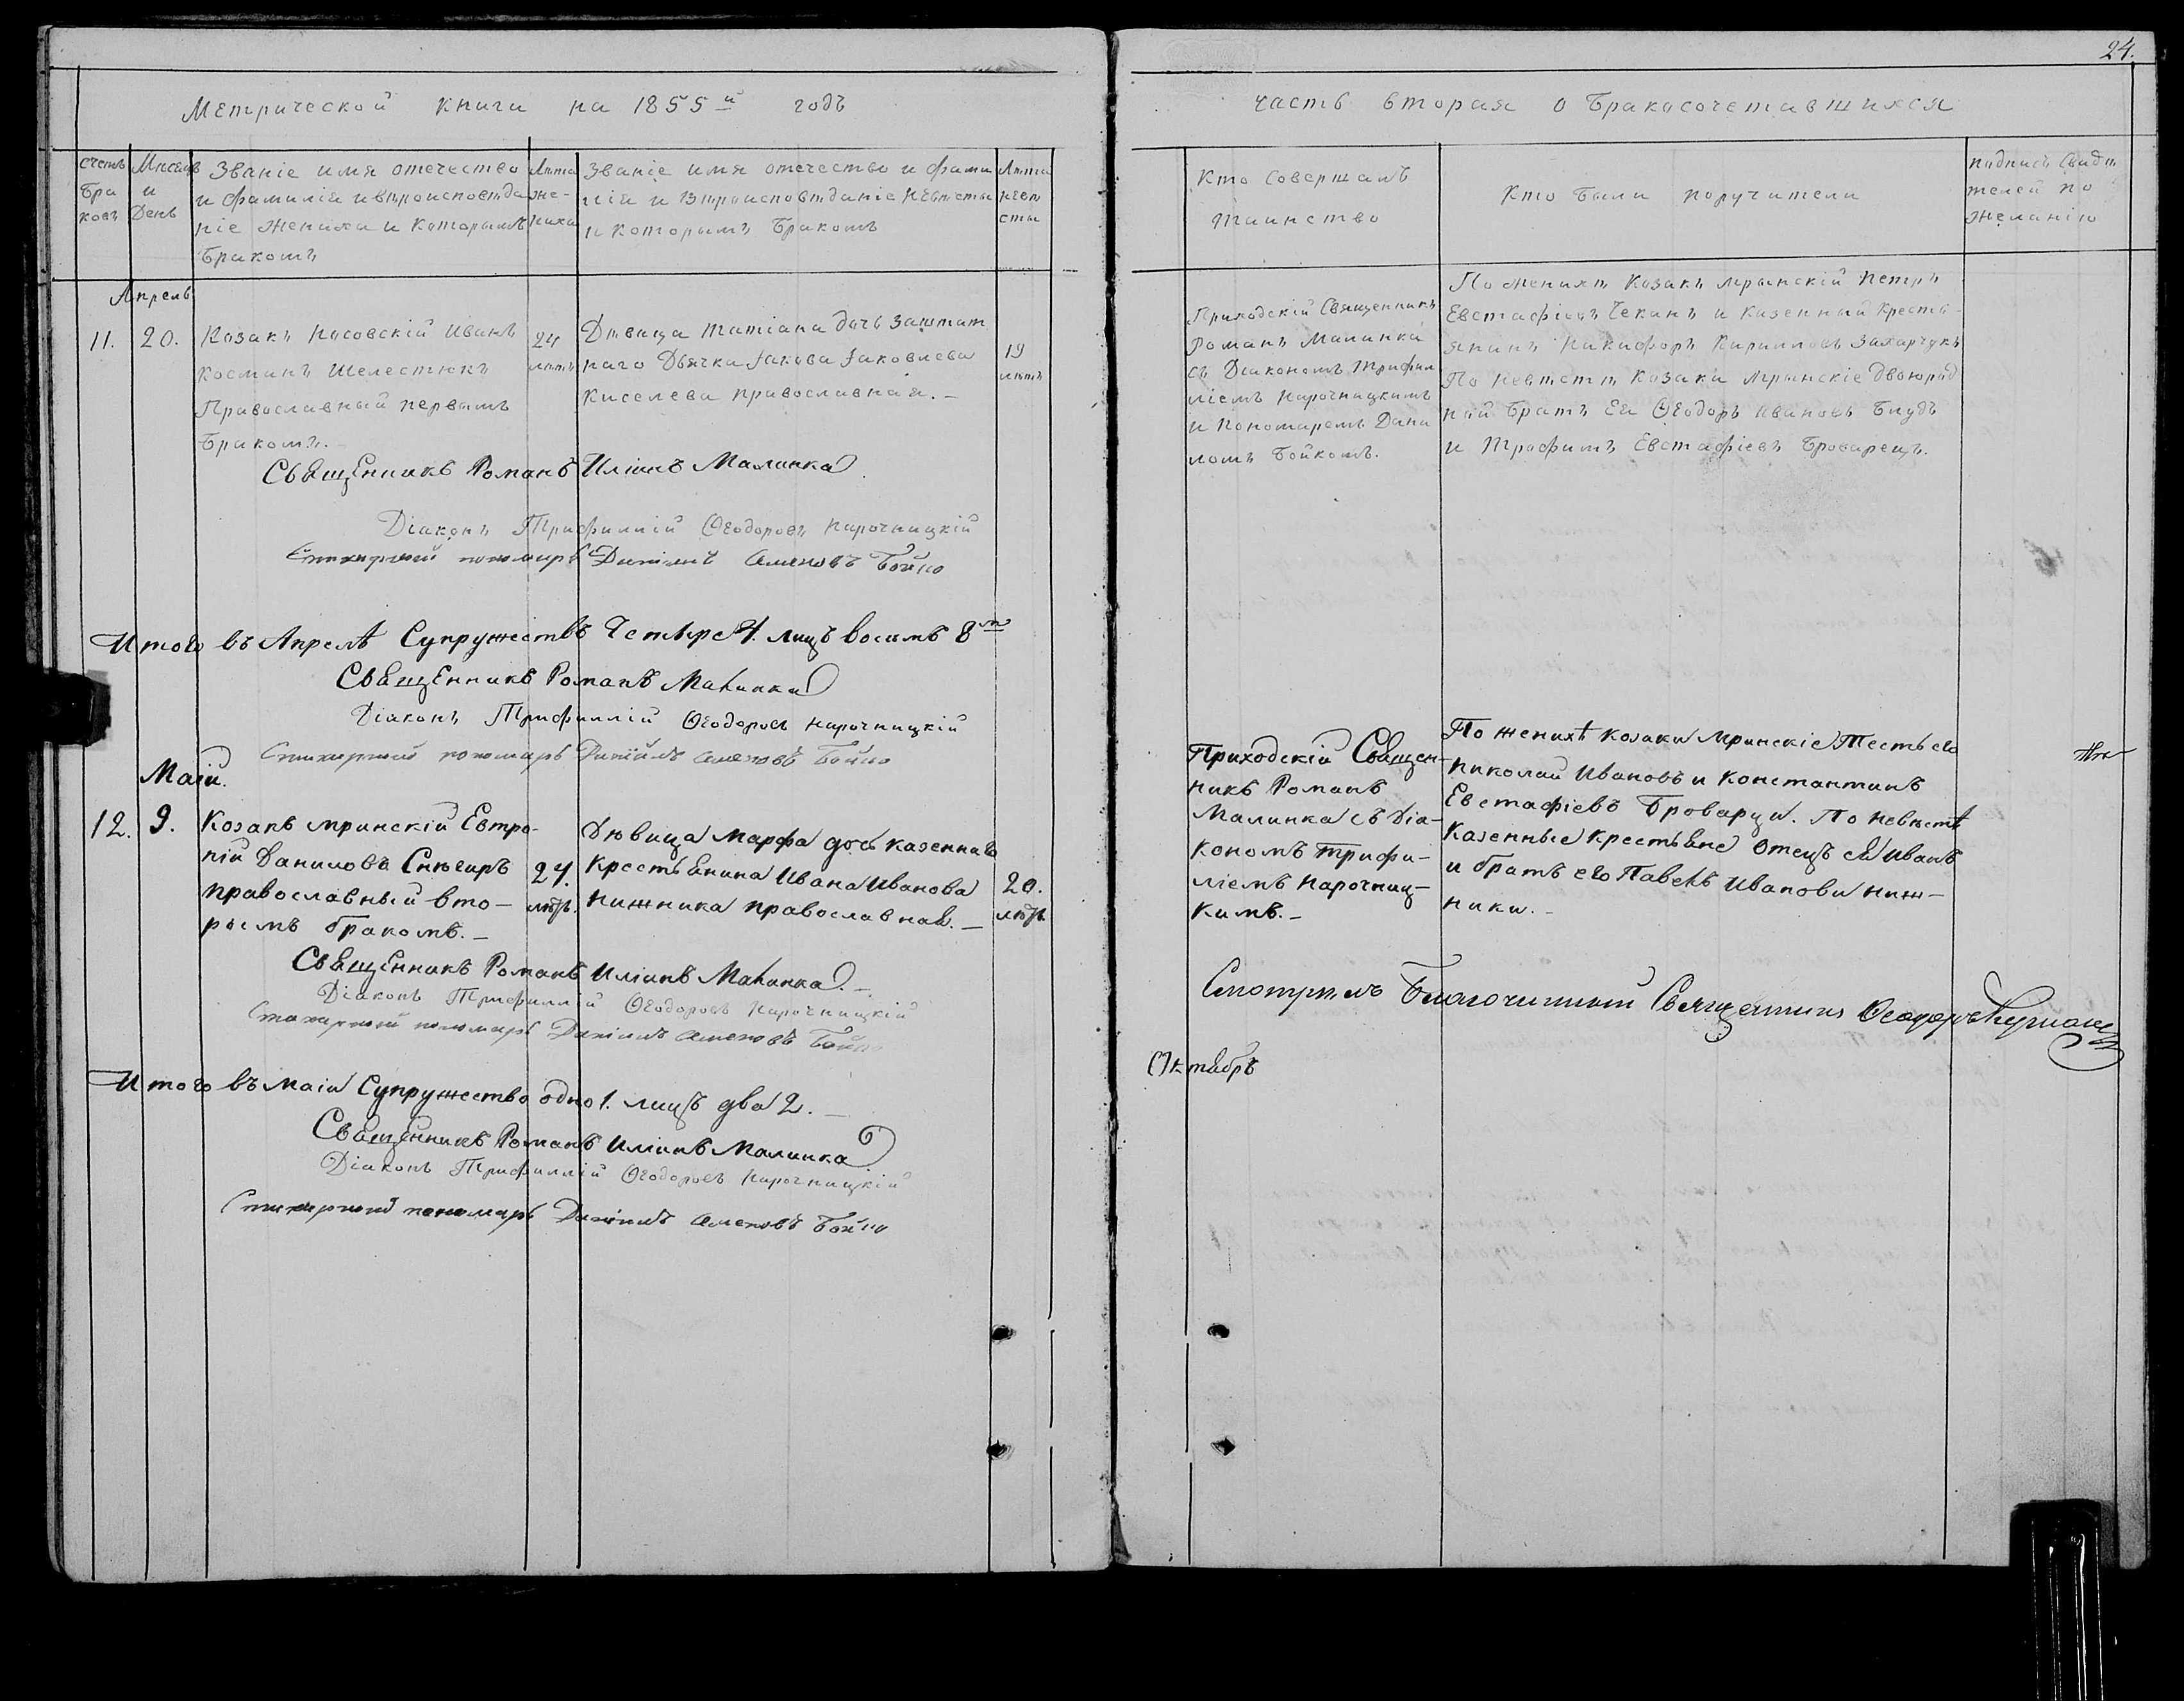 24.
Метрической книги на 1855й годъ
часть вторая о бракосочетавшихся
счетъ браковъ
Мѣсяцъ и День
Званіе имя отечество
и фамилія и вѣроисповѣда
ніе Жениха и Которымъ
Бракомъ
Лѣта жениха
Званіе имя отечество и фами
лія и Вѣроисповѣданіе Невѣсты
и которымъ Бракомъ
Лѣта невѣсты
Кто Совершалъ
таинство
Кто были поручители
подпись Свидѣ
телей по
желанію
Апрель
11. 20.
Казакъ Носовскій Иванъ
Косминъ Шелестюкъ
Православный первымъ
Бракомъ.
24
лѣтъ
Дѣвица Татіана дочь Заштат
наго Дьячка Іакова Іаковлева
Киселева православная. –
19
лѣтъ
Приходскій Священникъ
Романъ Малинка
съ Діакономъ Трифил
ліемъ Нарочницкимъ
и Пономаремъ Дани
ломъ Бойкомъ.
По женихѣ Казакъ Мрынскій Петръ
Евстафіевъ Чекинъ и Казенный Кресть-
янинъ Никифоръ Кирилловъ Захарчукъ
По Невѣстѣ Казаки Мрынскіе Двоюрод
ной Братъ Ея Ѳеодоръ Ивановъ Блудъ
и Трофимъ Евстафіевъ Броварецъ.
Священникъ Романъ Иліинъ Малинка
Діаконъ Трифиллій Ѳеодоровъ Нарочницкій
Стихарный пономарь Даніилъ Бойко
Итого въ Апрелѣ Супружествъ Четыре 4. лицъ восимъ 8
Священникъ Романъ Малинка
Діаконъ Трифиллій Ѳеодоровъ Нарочницкій
Стихарный пономарь Даніилъ Бойко
Маій.
12. 9.
Козакъ мринскій Евтро-
пій Даниловъ Снѣгиръ
православный вто-
рымъ бракомъ. –
24.
лѣтъ.
Дѣвица Марфа дочь казеннаго
Крестьянина Ивана Иванова
Нижника православная. –
20.
лѣтъ.
Приходскій Священ-
никъ Романъ
Малинка съ Діа-
кономъ Трифи-
ліемъ Нарочниц-
кимъ. –
По женихѣ козаки Мринскіе Тесть его
Николай Ивановъ и Константинъ
Евстафіевъ Броварци. По Невѣстѣ
Казенные крестьяне Отецъ ея Иванъ
и братъ его Павелъ Ивановы Ниж-
ники. –
Священникъ Романъ Иліинъ Малинка. –
Діаконъ Трифиллій Ѳеодоровъ Нарочницкій
Стихарный пономарь Даніилъ Бойко
Смотрѣлъ Благочинный Священникъ Ѳеодоръ
Октябрь
Итого въ маіи Супружество одно 1. лицъ два 2. –
Священникъ Романъ Иліинъ Малинка
Діаконъ Трифиллій Ѳеодоровъ Нарочницкій
Стихарный пономарь Даніилъ Бойко